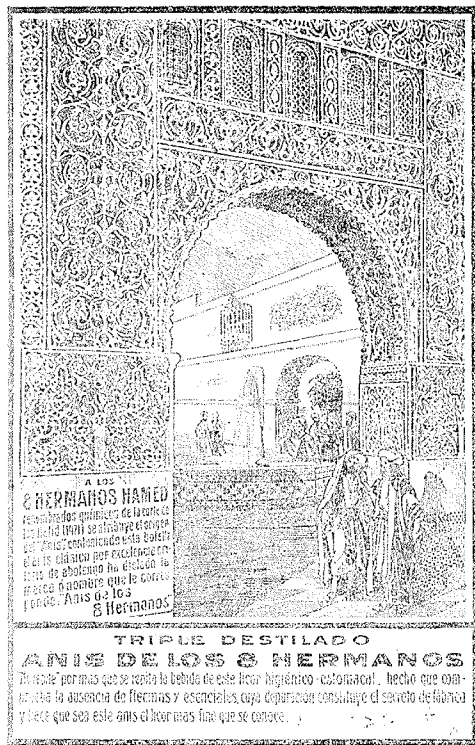 A LOS
8 HERMANOS HAMED
renombrados químicos de la corte de
se atribuye el origen
del "Anís" contenido en esta botella
él es clásico por excelencia
de abolengo ha dictado la
marca ó nombre que le corres
ponde. "Anís de los
8 Hermanos"
TRIPLE DESTILADO
ANIS DE LOS 8 HERMANOS
por más que se repita la bebida de este licor higiénico-estomacal, hecho que com-
prueba la ausencia de flecmas y esenciales, cuya depuración constituye el secreto de fábrica
y hace que sea este anís el licor mas fino que se conoce.